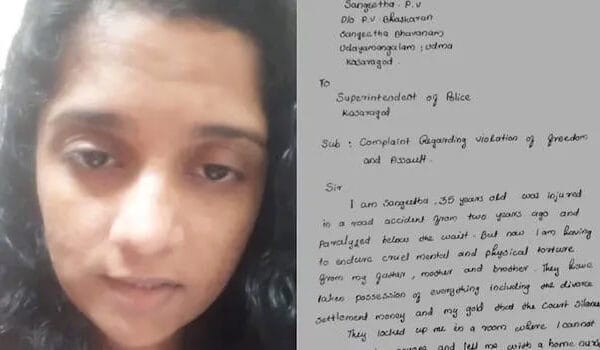 Sangeetha. P.V
D/o P.V Bhaskaran
Sangeetha Bhavanam
Udayamangalam, Udma
Kasaragod.
To
Superintendent of Police
Kasaragod
Sub : Complaint Regarding violation of freedom
and Assault.
Sir
I am Sangeetha, 35 years old was injured
in a road accident from two years ago and
paralyzed below the waist. But now I am having
to endure cruel mental and physical torture
from my father, mother and brother. They have
taken possession of everything including the divorce
settlement money and my gold that the court
They locked up me in a room where I cannot
and left me with a home